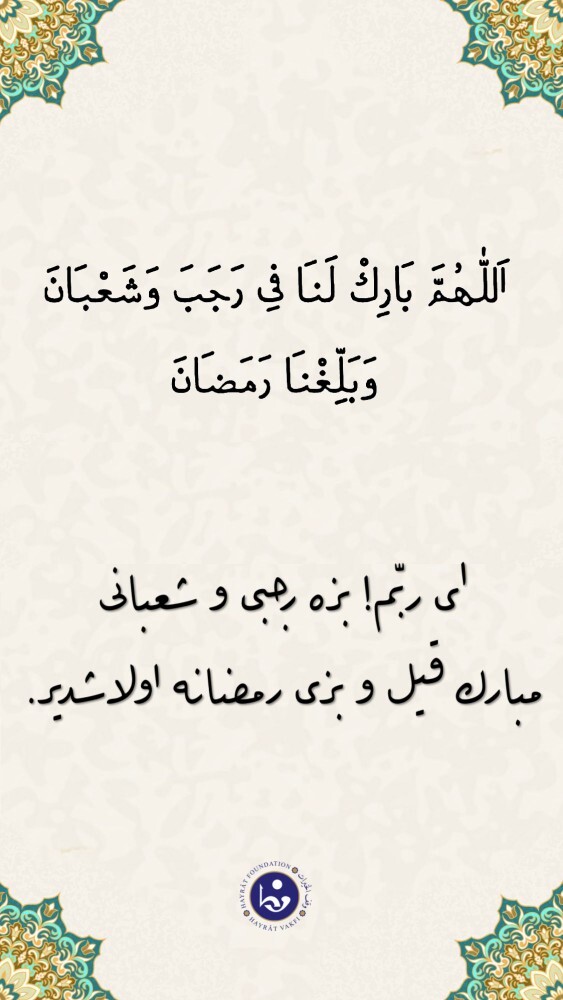 اَللّٰهُمَّ بَارِكْ لَنَا فِي رَجَبَ وَشَعْبَانَ
وَبَلِّغْنَا رَمَضَانَ
اى ربّم! بزه رجبى و شعبانى
مبارك قيل و بزى رمضانه اولاشدير.
HAYRÂT FOUNDATION
وقف الخيرات
HAYRÂT VAKFI